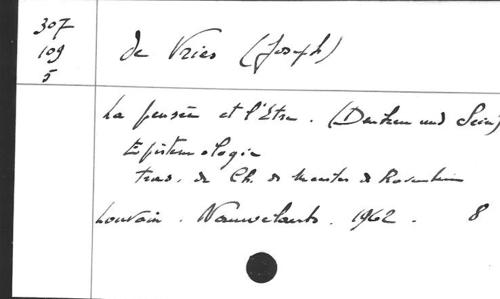 307
109
5
de Vries (Joseph)
La pensée et l'Être. (Denken und Sein)
Epistemologie
trad. de Ch. de Meester de
Louvain. Nauwelaerts. 1962. 8